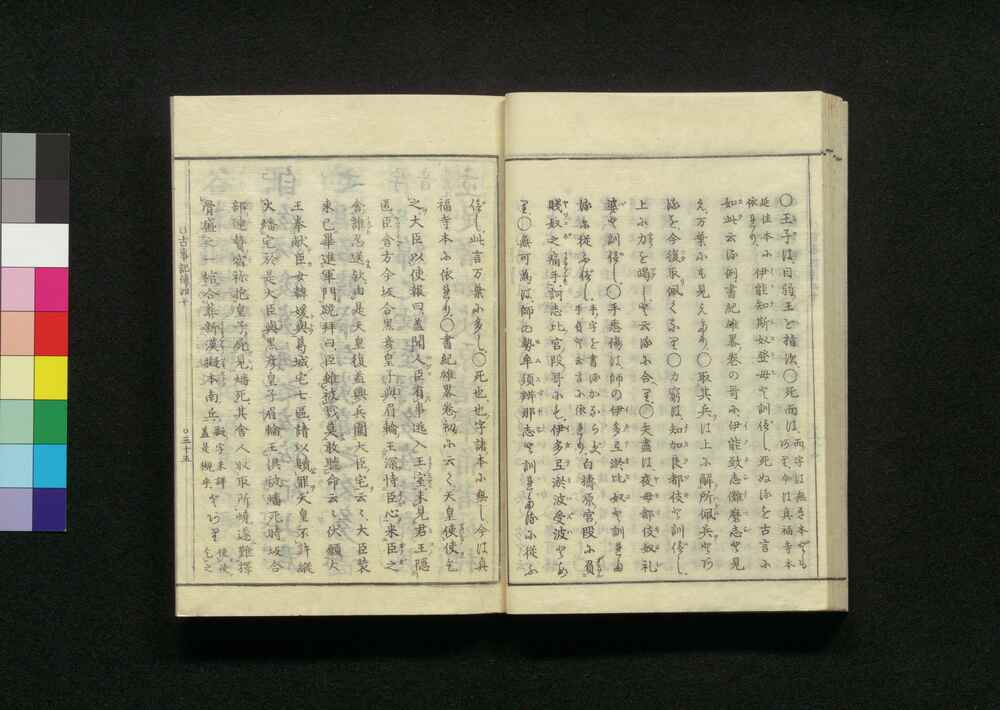 〇王子は目弱王を指次〇死而は
延佳本に伊能知斯奴登母と訓
如此云る例書紀雄略巻の哥に伊能致志儺磨志と見
え万葉にも見えあり〇取其兵は上に解所佩兵とあり
を今復取佩くなり〇力窮は知加良都伎と訓べし
上に力を竭しと云るに合へり〇矢盡は夜母都伎奴礼
婆と訓べし〇手悉傷は師の伊多互淤比奴と訓
る従ふべし手字を書る白檮原宮段に負
賤奴之痛手訶志比宮段哥にも伊多互淤波受波とあ
り〇無可為は師の勢牟須辨那志と訓れたるに従ふ
べし此言万葉に多し〇死也也字諸本に無し今は真
福寺本に依れり〇書紀雄略巻初に云々天皇使使乞
之大臣以使報曰蓋聞人臣有事逃入王室未見君王隠
匿臣舎方今坂合黒彦皇子與眉輪王深恃臣心来臣之
舎詎忍送歟由是天皇復益兵圍大臣宅云々大臣装
束已畢進軍門跪拝曰臣雖被戮莫敢聴命云々伏願大
王奉献臣女韓媛與葛城宅七區請以贖罪天皇不許縦
火燔宅於是大臣與黒彦皇子眉輪王倶被燔死時坂合
部連贄宿禰抱皇子屍見燔死其舎人収取所焼遂難擇
骨盛之一棺合葬新漢擬本南丘擬字未詳蓋是槻乎
古事記傳四十
〇三十五